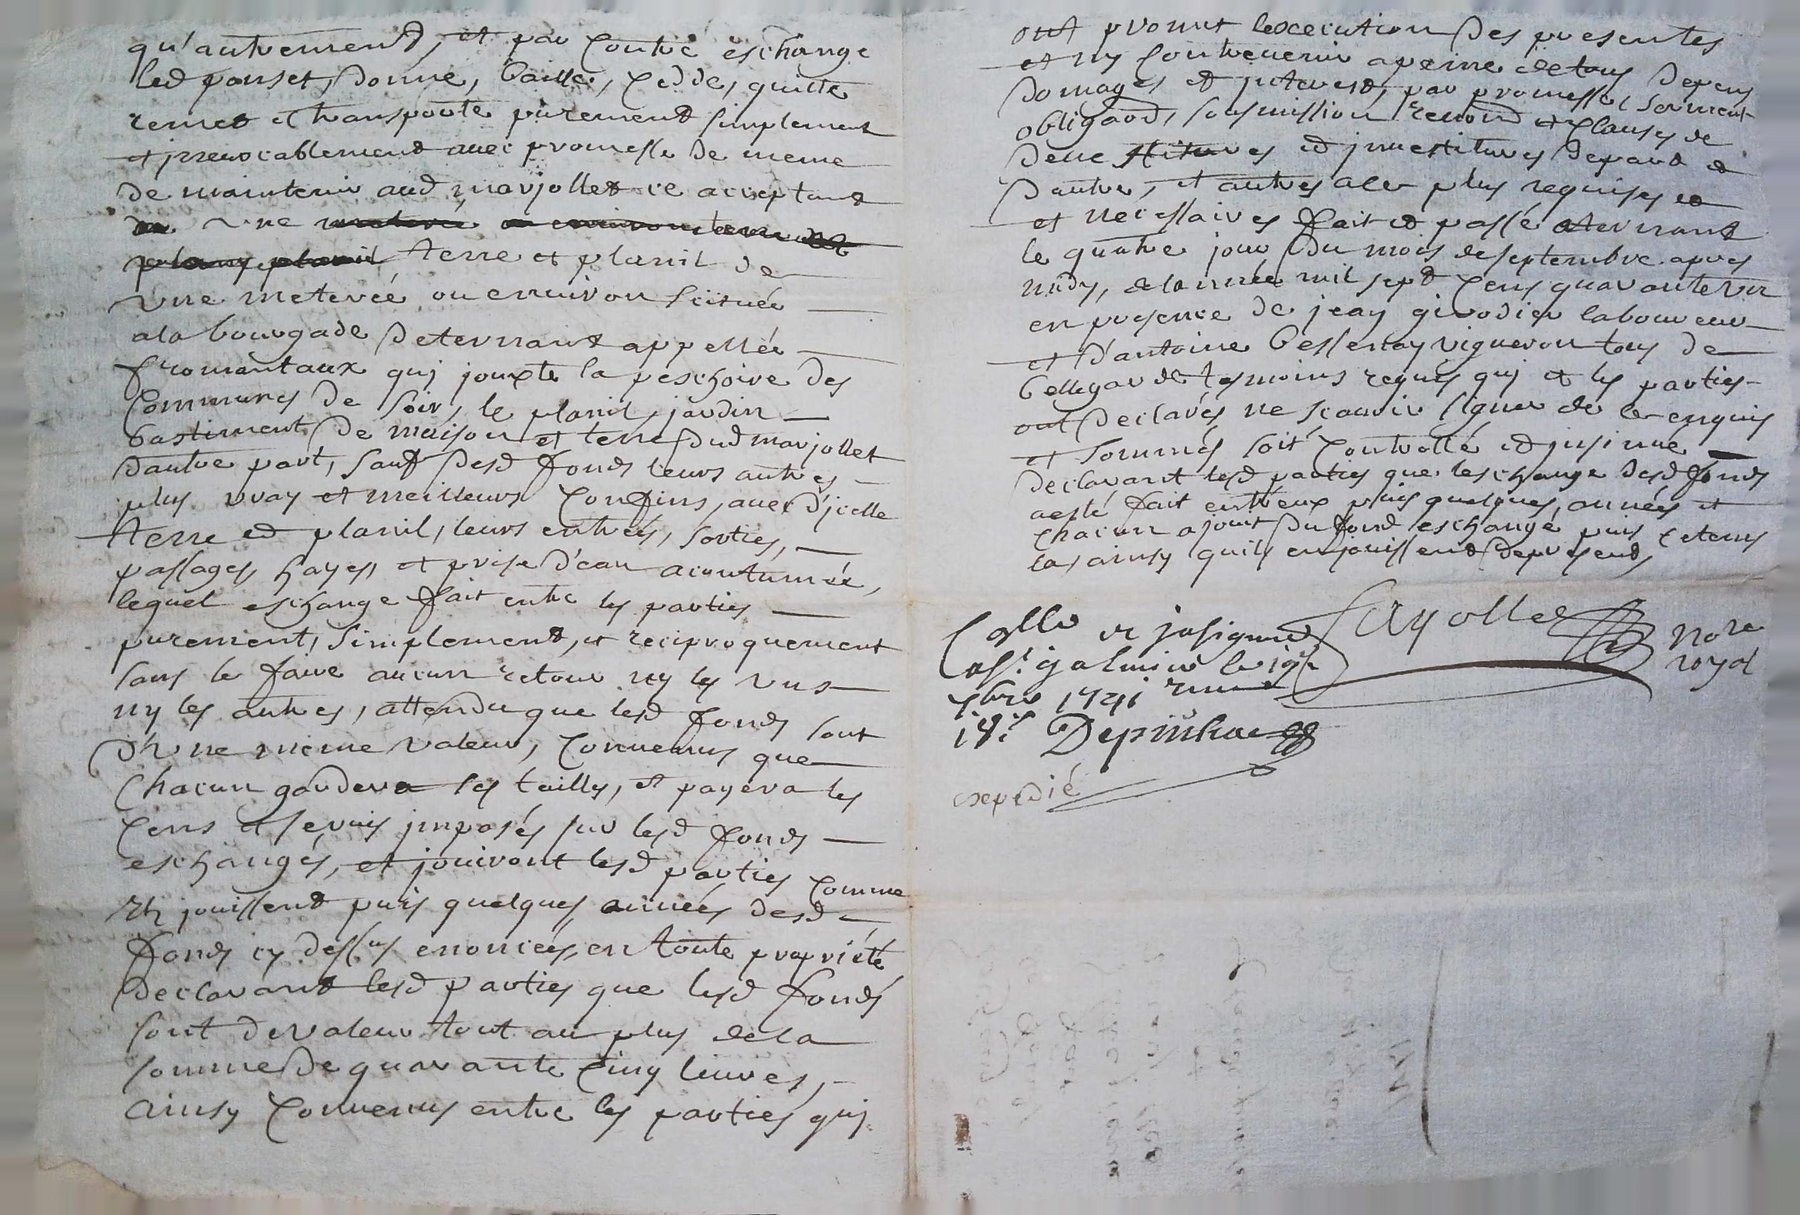 qu'autrement, et par contre eschange
led ponset, donne, baille, cedde, quitte
remet et transporte purement simplement
et jrrevocablement avec promesse de meme
de maintenir aud marjollet ce acceptant
une
terre et planil de
une meterée ou environ scituée
a la bourgade deternant appellée
fromantaux qui jouxte la peschoire des
communes de soir, le planil, jardin
bastiment de maison et terre dud marjollet
dautre part, sauf desd fonds leurs autres
plus vray et meilleurs confins, avec d'jcelle
terre et planil, leurs entrées, sorties,
passages, hayes, et prise d'eau acoutumée,
lequel eschange fait entre les parties
purement, simplement, et reciproquement
sans se faire aucun retour ny les uns
ny les autres, attendu que lesd fonds sont
d'une meme valeur, convenus que
chacun gardera ses tailles, et payera les
cens et servis jmposés sur lesd fonds
eschangés, et jouiront lesd parties comme
ils jouissent puis quelques années desd
fonds cy dessus enoncés, en toute proprieté
declarant lesd parties que lesd fonds
sont de valeur tout au plus de la
somme de quarante cinq livres,
ainsy convenus entre les parties qui
ont promit lexecution des presentes
et ny contrevenir a peine de tous depens
domages et jnterest, par promesse, serment
obligaõn, soumission renonõn et clauses de
devestitures et jnvestitures de part et
dautre, et autres a ce plus requises et
et necessaires fait et passé a ternant
le quatre jour du mois de septembre apres
midy, de lannée mil sept cens quarante un
en presence de jean girodier laboureur
et d'antoine bessenay vigneron tous de
bellegarde tesmoins requis qui et les parties
ont declarés ne scavoir signer de ce enquis
et sommés soit controllé et jnsinué
declarant lesd parties que leschange desd fonds
a esté fait entreux puis quelques années et
chacun a jouit du fond eschangé puis ce tems
la, ainsy quils en jouissent de present
Collo et jnsignué Fayolle nore
a st galmier le 19e royal
7bre 1741
Depinhac
expedié